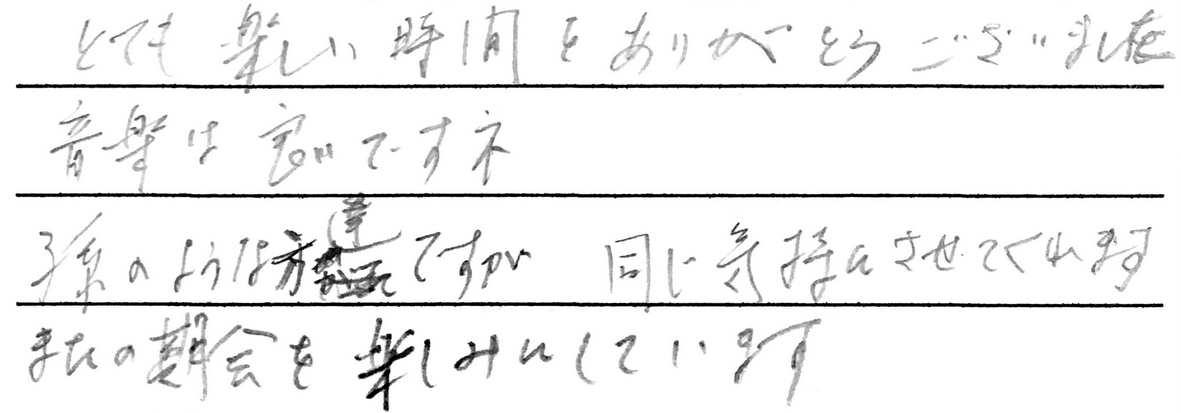 とても楽しい時間をありがとうございました
音楽は良いですネ
孫のような方達ですが 同じ気持にさせてくれます
またの期会を楽しみにしています